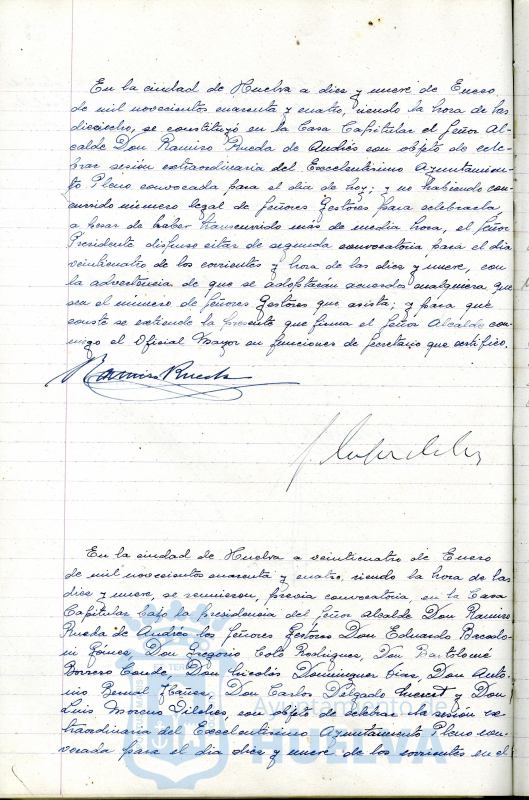 En la ciudad de Huelva a diez y nueve de Enero
de mil novecientos cuarenta y cuatro, siendo la hora de las
dieciocho, se constituyó en la Casa Capitular el Señor Al-
calde Don Ramiro Rueda de Andrés con objeto de cele-
brar sesión extraordinaria del Excelentísimo Ayuntamien-
to Pleno convocada para el día de hoy; y no habiendo con-
currido número legal de Señores Gestores para celebrarla
a pesar de haber transcurrido más de media hora, el Señor
Presidente dispuso citar de segunda convocatoria para el día
veinticuatro de los corrientes y hora de las diez y nueve, con
la advertencia de que se adoptarán acuerdos cualquiera que
sea el número de Señores Gestores que asista; y para que
conste se extiende la presente que firma el Señor Alcalde con-
migo el Oficial Mayor en funciones de Secretario que certifico.
Ramiro Rueda
En la ciudad de Huelva a veinticuatro de Enero
de mil novecientos cuarenta y cuatro, siendo la hora de las
diez y nueve, se reunieron, previa convocatoria, en la Casa
Capitular bajo la presidencia del Señor Alcalde Don Ramiro
Rueda de Andrés los Señores Gestores Don Eduardo
Gómez, Don Gregorio Rodríguez, Don Bartolomé
Borrero Conde, Don Nicolás Domínguez Don Anto-
nio Bernal Don Carlos Delgado y Don
Luis Moreno con objeto de celebrar la sesión ex-
traordinaria del Excelentísimo Ayuntamiento Pleno con-
vocada para el día diez y nueve de los corrientes en el
Ayuntamiento de
HUELVA